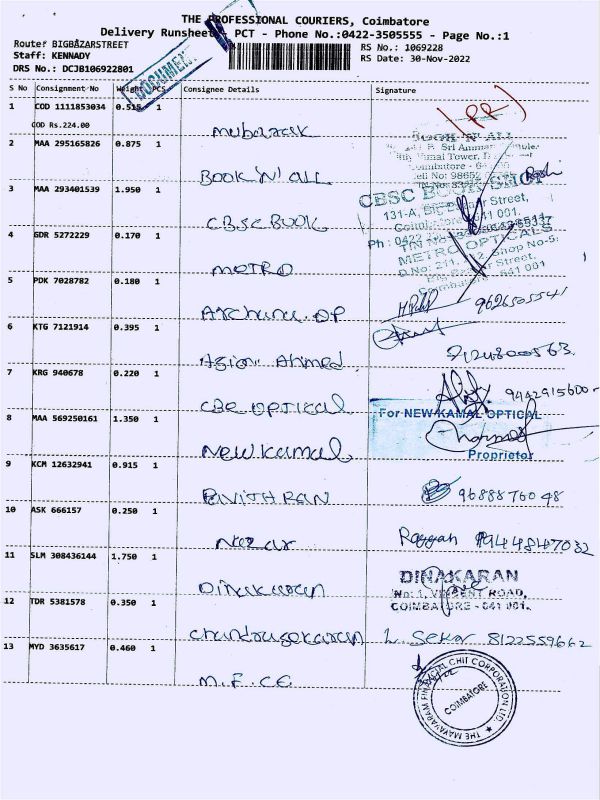 THE PROFESSIONAL COURIERS, Coimbatore
Delivery Runsheet - PCT - Phone No.:0422-3505555 - Page No.:1
Route: BIGBAZARSTREET
RS No.: 1069228
Staff: KENNADY
RS Date: 30-Nov-2022
DRS No.: DCJB106922801
DOCUMENT
S No Consignment No Weight PCS Consignee Details Signature
1 COD 1111853034 0.515 1
COD Rs.224.00
Mubarak
(PR)
2 MAA 295165826 0.875 1
BOOK 'N' ALL
BOOK 'N' ALL
3 MAA 293401539 1.950 1
CBSC BOOK
CBSC BOOK SHOP
131-A, Big Street,
641 001.
Ph: 0422
4 GDR 5272229 0.170 1
METRO
METRO OPTICALS
Shop No-5,
Street,
641 001
5 PDK 7028782 0.180 1
Archana. OP
9626505541
6 KTG 7121914 0.395 1
Ahmed
7 KRG 940678 0.220 1
CBE OPTICAL
9442915600
8 MAA 569250161 1.350 1
New Kamal
For NEW KAMAL OPTICAL
Proprietor
9 KCM 12632941 0.915 1
PAVITHRAN
9688876048
10 ASK 666157 0.250 1
11 SLM 308436144 1.750 1
Dinakaran
DINAKARAN
No: 1, VINCENT ROAD,
COIMBATORE - 641 001.
12 TDR 5381578 0.350 1
Chandrasekaran
L. Sekar 8122559662
13 MYD 3635617 0.460 1
M.F.CE
THE MAYAVARAM FINANCIAL CHIT CORPORATION LTD.
COIMBATORE